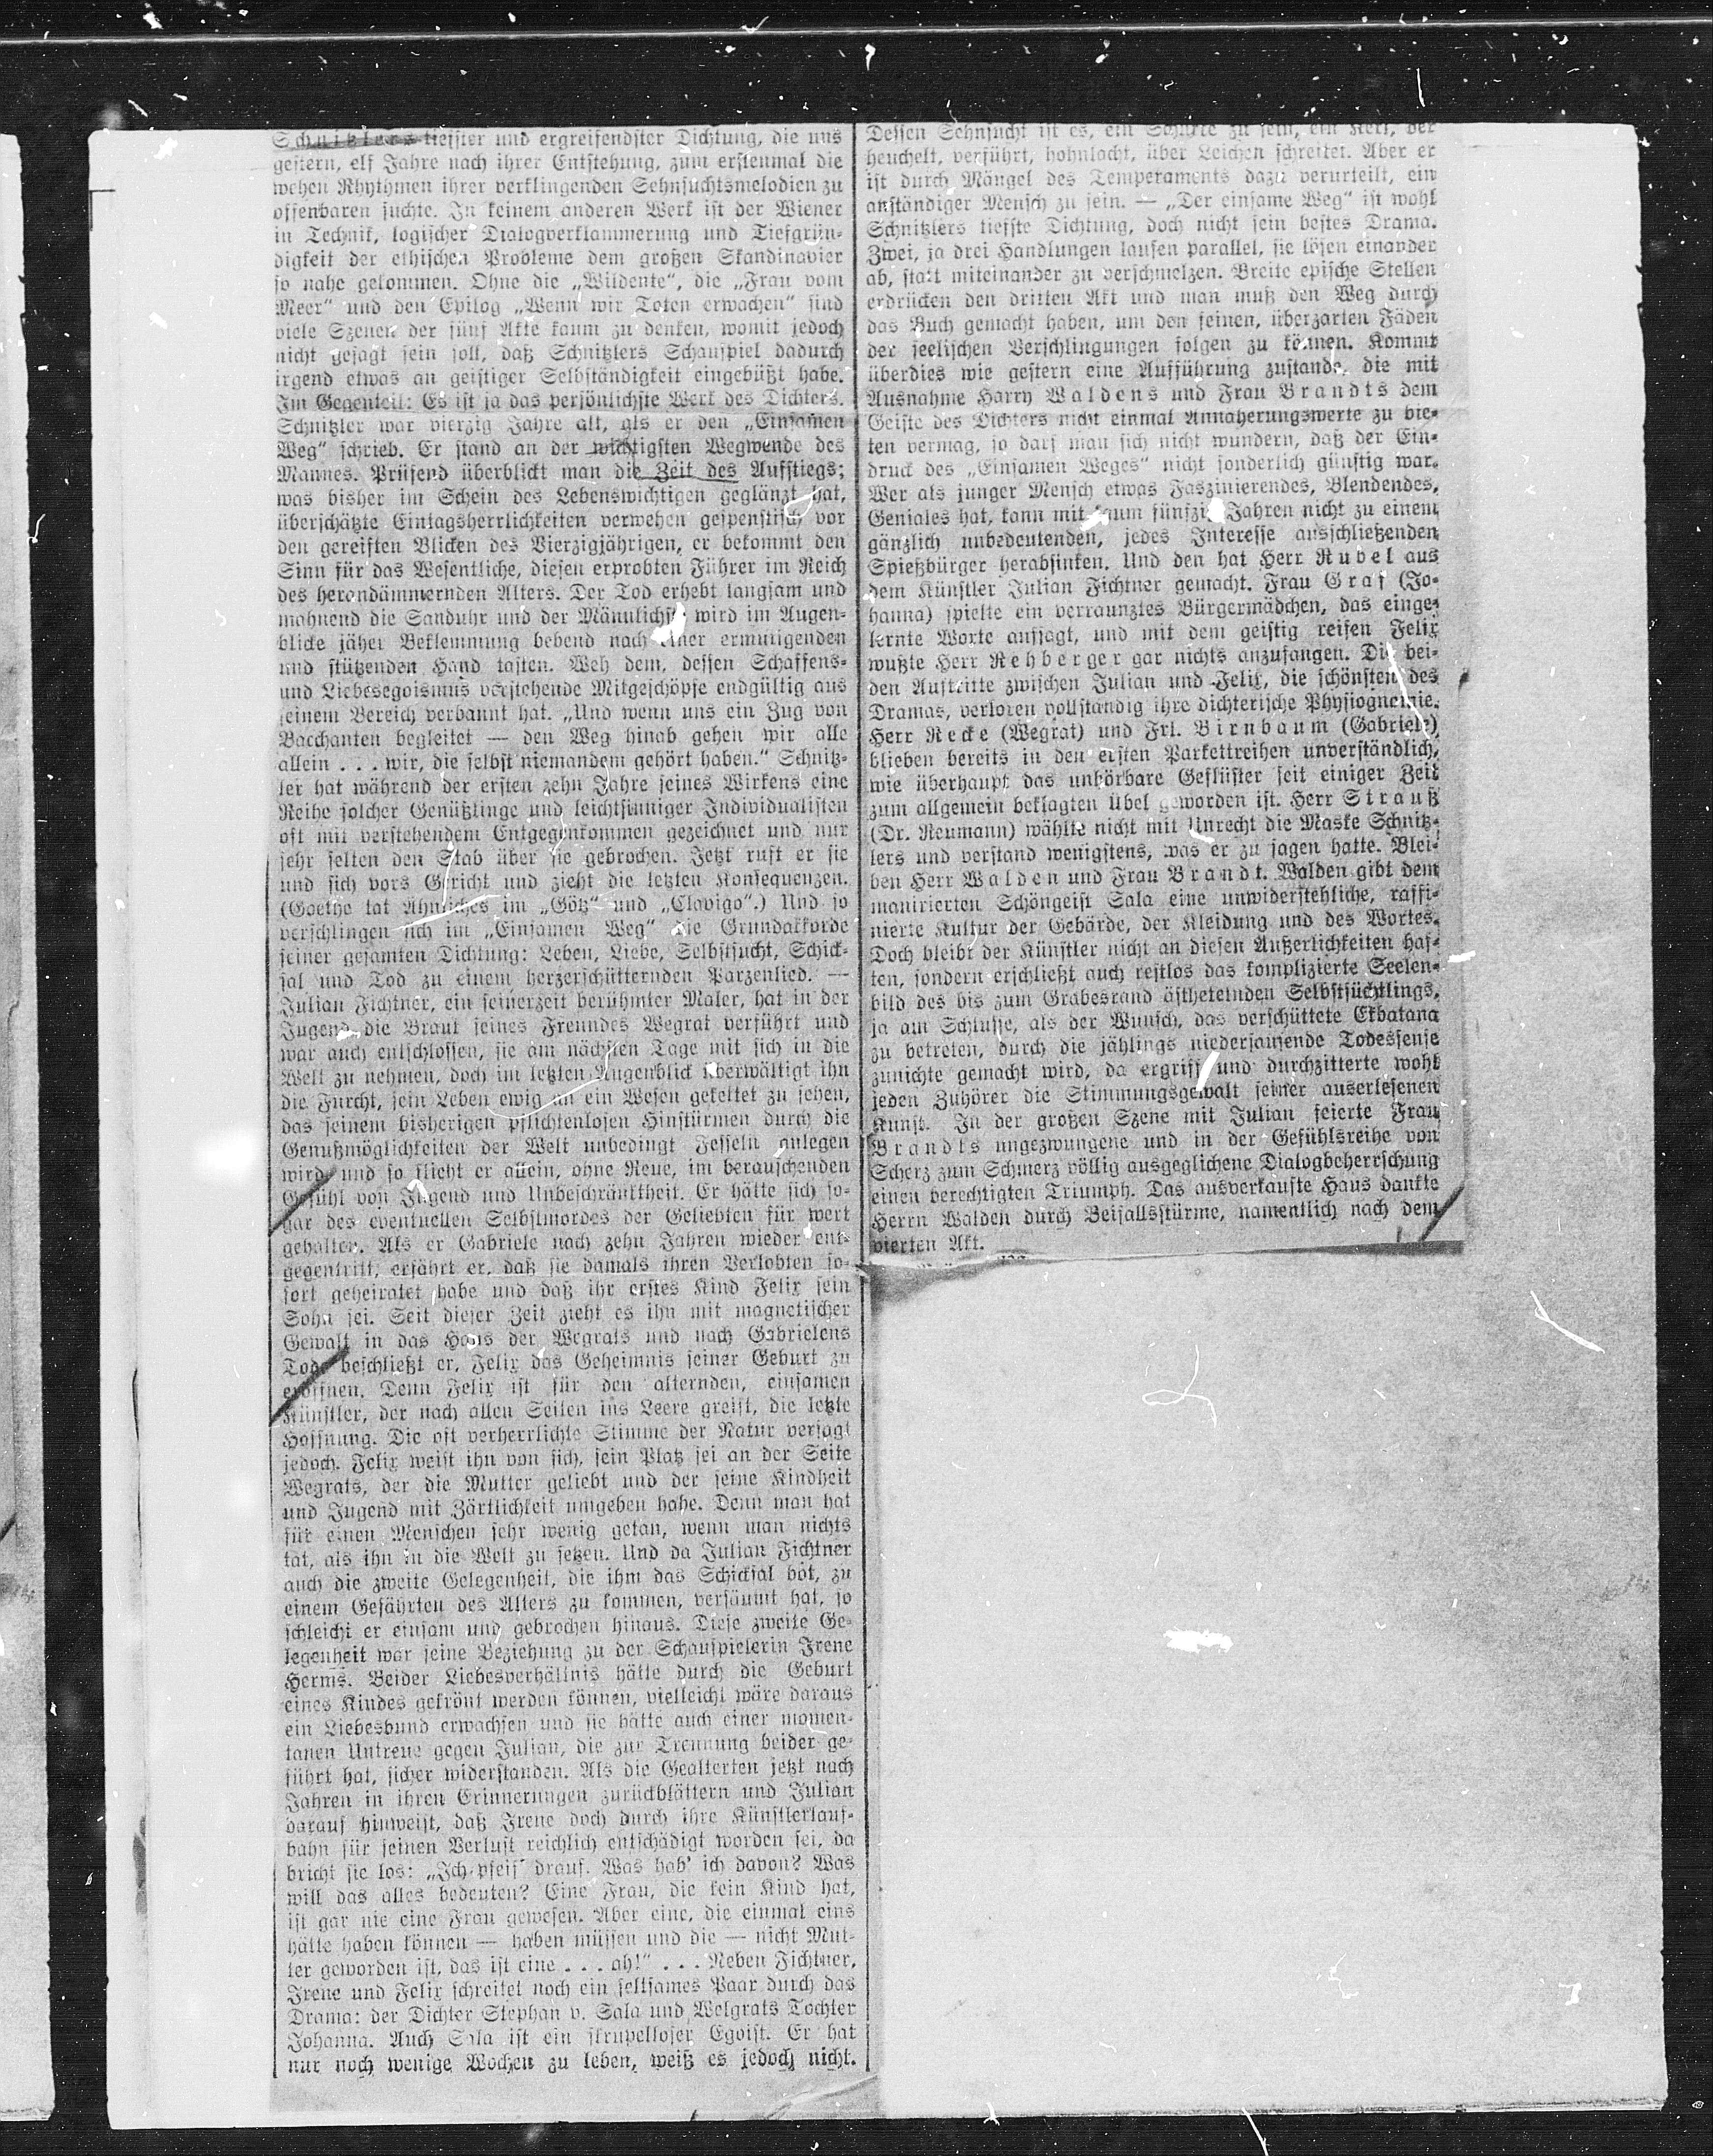 Schnitzlers tiefster und ergreifendster Dichtung, die uns
gestern, elf Jahre nach ihrer Entstehung, zum erstenmal die
wehen Rhythmen ihrer verklingenden Sehnsuchtsmelodien zu
offenbaren suchte. In keinem anderen Werk ist der Wiener
in Technik, logischer Dialogverklammerung und Tiefgrün-
digkeit der ethischen Probleme dem großen Skandinavier
so nahe gekommen. Ohne die „Wildente“, die „Frau vom
Meer“ und den Epilog „Wenn wir Toten erwachen“ sind
viele Szenen der fünf Akte kaum zu denken, womit jedoch
nicht gesagt sein soll, daß Schnitzlers Schauspiel dadurch
irgend etwas an geistiger Selbständigkeit eingebüßt habe.
Im Gegenteil: Es ist ja das persönlichste Werk des Dichters.
Schnitzler war vierzig Jahre alt, als er den „Einsamen
Weg“ schrieb. Er stand an der wichtigsten Wegwende des
Mannes. Prüfend überblickt man die Zeit des Aufstiegs;
was bisher im Schein des Lebenswichtigen geglänzt hat,
überschätzte Eintagsherrlichkeiten verwehen gespenstisch vor
den gereiften Blicken des Vierzigjährigen, er bekommt den
Sinn für das Wesentliche, diesen erprobten Führer im Reich
des herandämmernden Alters. Der Tod erhebt langsam und
mahnend die Sanduhr und der Männlichste wird im Augen-
blicke jäher Beklemmung bebend nach einer ermutigenden
und stützenden Hand tasten. Weh dem, dessen Schaffens-
und Liebesegoismus verstehende Mitgeschöpfe endgültig aus
seinem Bereich verbannt hat. „Und wenn uns ein Zug von
Bacchanten begleitet — den Weg hinab gehen wir alle
allein . . . wir, die selbst niemandem gehört haben.“ Schnitz-
ler hat während der ersten zehn Jahre seines Wirkens eine
Reihe solcher Genüßlinge und leichtsinniger Individualisten
oft mit verstehendem Entgegenkommen gezeichnet und nur
sehr selten den Stab über sie gebrochen. Jetzt ruft er sie
und sich vors Gericht und zieht die letzten Konsequenzen.
(Goethe tat Ähnliches im „Götz“ und „Clavigo“.) Und so
verschlingen sich im „Einsamen Weg“ die Grundakkorde
seiner gesamten Dichtung: Leben, Liebe, Selbstsucht, Schick-
sal und Tod zu einem herzerschütternden Parzenlied. —
Julian Fichtner, ein seinerzeit berühmter Maler, hat in der
Jugend die Braut seines Freundes Wegrat verführt und
war auch entschlossen, sie am nächsten Tage mit sich in die
Welt zu nehmen, doch im letzten Augenblick überwältigt ihn
die Furcht, sein Leben ewig an ein Wesen gekettet zu sehen,
das seinem bisherigen pflichtenlosen Hinstürmen durch die
Genußmöglichkeiten der Welt unbedingt Fesseln anlegen
wird, und so flieht er allein, ohne Reue, im berauschenden
Gefühl von Jugend und Unbeschränktheit. Er hätte sich so-
gar des eventuellen Selbstmordes der Geliebten für wert
gehalten. Als er Gabriele nach zehn Jahren wieder ent-
gegentritt, erfährt er, daß sie damals ihren Verlobten so-
fort geheiratet habe und daß ihr erstes Kind Felix sein
Sohn sei. Seit dieser Zeit zieht es ihn mit magnetischer
Gewalt in das Haus der Wegrats und nach Gabrielens
Tode beschließt er, Felix das Geheimnis seiner Geburt zu
eröffnen. Denn Felix ist für den alternden, einsamen
Künstler, der nach allen Seiten ins Leere greift, die letzte
Hoffnung. Die oft verherrlichte Stimme der Natur versagt
jedoch. Felix weist ihn von sich, sein Platz sei an der Seite
Wegrats, der die Mutter geliebt und der seine Kindheit
und Jugend mit Zärtlichkeit umgeben habe. Denn man hat
für einen Menschen sehr wenig getan, wenn man nichts
tat, als ihn in die Welt zu setzen. Und da Julian Fichtner
auch die zweite Gelegenheit, die ihm das Schicksal bot, zu
einem Gefährten des Alters zu kommen, versäumt hat, so
schleicht er einsam und gebrochen hinaus. Diese zweite Ge-
legenheit war seine Beziehung zu der Schauspielerin Irene
Herms. Beider Liebesverhältnis hätte durch die Geburt
eines Kindes gekrönt werden können, vielleicht wäre daraus
ein Liebesbund erwachsen und sie hätte auch einer momen-
tanen Untreue gegen Julian, die zur Trennung beider ge-
führt hat, sicher widerstanden. Als die Gealterten jetzt nach
Jahren in ihren Erinnerungen zurückblättern und Julian
darauf hinweist, daß Irene doch durch ihre Künstlerlauf-
bahn für seinen Verlust reichlich entschädigt worden sei, da
bricht sie los: „Ich pfeif' drauf. Was hab' ich davon? Was
will das alles bedeuten? Eine Frau, die kein Kind hat,
ist gar nie eine Frau gewesen. Aber eine, die einmal eins
hätte haben können — haben müssen und die — nicht Mut-
ter geworden ist, das ist eine . . . ah!“ . . . Neben Fichtner,
Irene und Felix schreitet noch ein seltsames Paar durch das
Drama: der Dichter Stephan v. Sala und Welgrats Tochter
Johanna. Auch Sala ist ein skrupelloser Egoist. Er hat
nur noch wenige Wochen zu leben, weiß es jedoch nicht.
Dessen Sehnsucht ist es, ein Schurke zu sein, ein Kerl, der
heuchelt, verführt, hohnlacht, über Leichen schreitet. Aber er
ist durch Mängel des Temperaments dazu verurteilt, ein
anständiger Mensch zu sein. — „Der einsame Weg“ ist wohl
Schnitzlers tiefste Dichtung, doch nicht sein bestes Drama.
Zwei, ja drei Handlungen laufen parallel, sie lösen einander
ab, statt miteinander zu verschmelzen. Breite epische Stellen
erdrücken den dritten Akt und man muß den Weg durch
das Buch gemacht haben, um den feinen, überzarten Fäden
der seelischen Verschlingungen folgen zu können. Kommt
überdies wie gestern eine Aufführung zustande, die mit
Ausnahme Harry Waldens und Frau Brandts dem
Geiste des Dichters nicht einmal Annäherungswerte zu bie-
ten vermag, so darf man sich nicht wundern, daß der Ein-
druck des „Einsamen Weges“ nicht sonderlich günstig war.
Wer als junger Mensch etwas Faszinierendes, Blendendes,
Geniales hat, kann mit kaum fünfzig Jahren nicht zu einem
gänzlich unbedeutenden, jedes Interesse ausschließenden
Spießbürger herabsinken. Und den hat Herr Rubel aus
dem Künstler Julian Fichtner gemacht. Frau Graf (Jo-
hanna) spielte ein verraunztes Bürgermädchen, das einge-
lernte Worte aufsagt, und mit dem geistig reifen Felix
wußte Herr Rehberger gar nichts anzufangen. Die bei-
den Auftritte zwischen Julian und Felix, die schönsten des
Dramas, verloren vollständig ihre dichterische Physiognomie.
Herr Recke (Wegrat) und Frl. Birnbaum (Gabriele)
blieben bereits in den ersten Parkettreihen unverständlich,
wie überhaupt das unhörbare Geflüster seit einiger Zeit
zum allgemein beklagten Übel geworden ist. Herr Strauß
(Dr. Reumann) wählte nicht mit Unrecht die Maske Schnitz-
lers und verstand wenigstens, was er zu sagen hatte. Blei-
ben Herr Walden und Frau Brandt. Walden gibt dem
manirierten Schöngeist Sala eine unwiderstehliche, raffi-
nierte Kultur der Gebärde, der Kleidung und des Wortes.
Doch bleibt der Künstler nicht an diesen Äußerlichkeiten haf-
ten, sondern erschließt auch restlos das komplizierte Seelen-
bild des bis zum Grabesrand ästhetelnden Selbstsüchtlings,
ja am Schlusse, als der Wunsch, das verschüttete Ekbatana
zu betreten, durch die jählings niedersausende Todessense
zunichte gemacht wird, da ergriff und durchzitterte wohl
jeden Zuhörer die Stimmungsgewalt seiner auserlesenen
Kunst. In der großen Szene mit Julian feierte Frau
Brandts ungezwungene und in der Gefühlsreihe von
Scherz zum Schmerz völlig ausgeglichene Dialogbeherrschung
einen berechtigten Triumph. Das ausverkaufte Haus dankte
Herrn Walden durch Beifallsstürme, namentlich nach dem
vierten Akt.